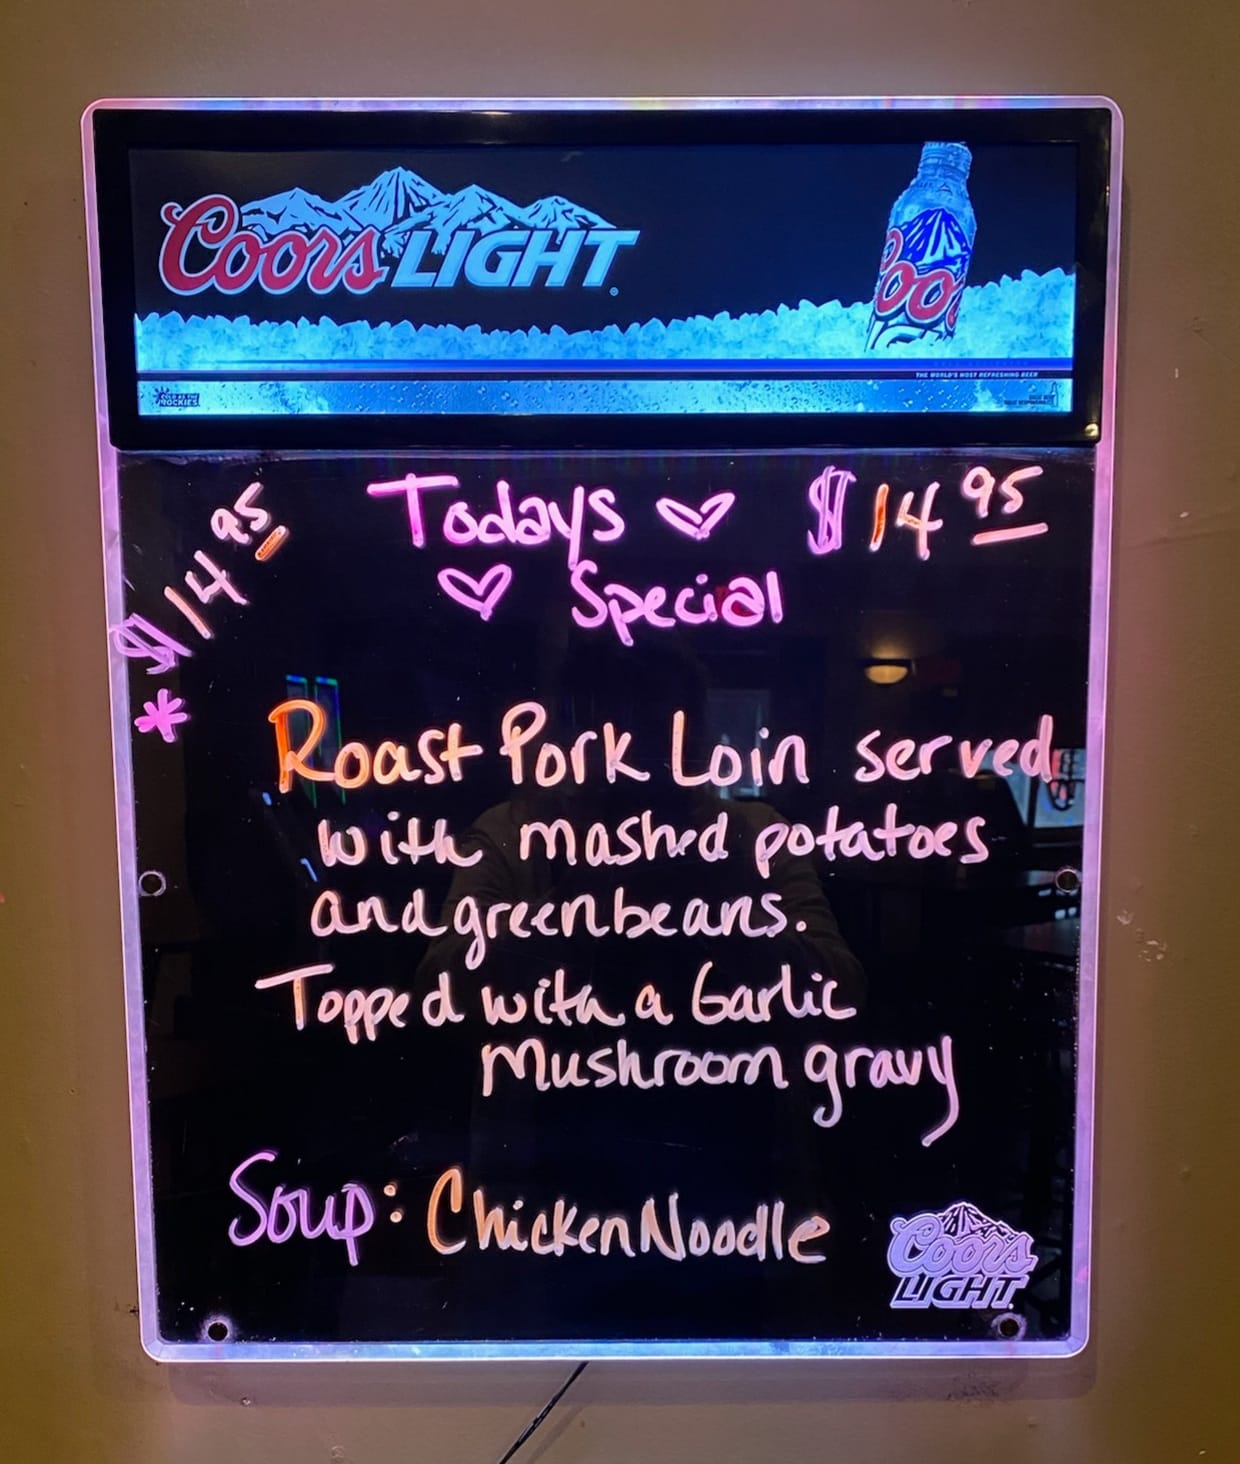 Coors LIGHT®
Coo
THE WORLD'S MOST REFRESHING BEER
COLD AS THE
ROCKIES
Todays ♡ $14 95
♡ Special
* $14 95
Roast Pork Loin served
with mashed potatoes
and greenbeans.
Topped with a Garlic
Mushroom gravy
Soup: Chicken Noodle
Coors
LIGHT